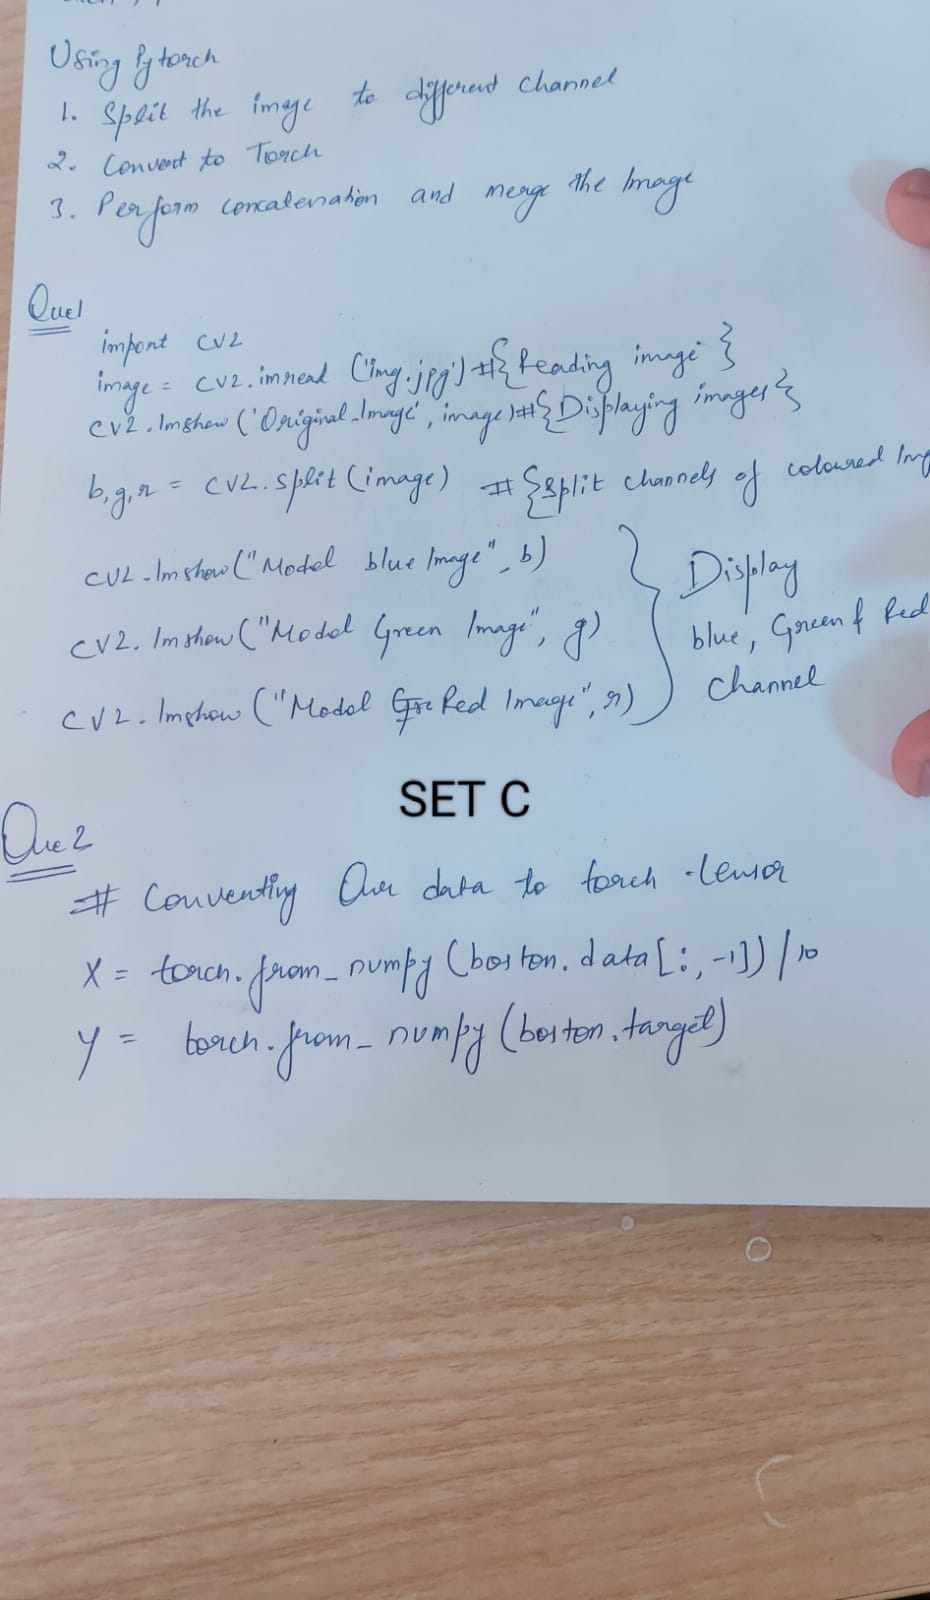 Using Pytorch
1. Split the image to different channel
2. Convert to Torch
3. Perform concatenation and merge the Image
Que1
import cv2
image = cv2.imread ('img.jpg') #{Reading image}
cv2.Imshow ('Original_Image', image) #{Displaying images}
b,g,r = cv2.split (image) #{Split channels of coloured
cv2.Imshow ("Model blue Image", b)
cv2. Imshow ("Model Green Image", g)
cv2. Imshow ("Model Red Image", r)
Display
blue, Green & Red
channel
SET C
Que 2
# Converting Our data to torch tensor
X = torch.from_numpy (boston.data[:,-1]) /10
y = torch.from_numpy (boston.target)